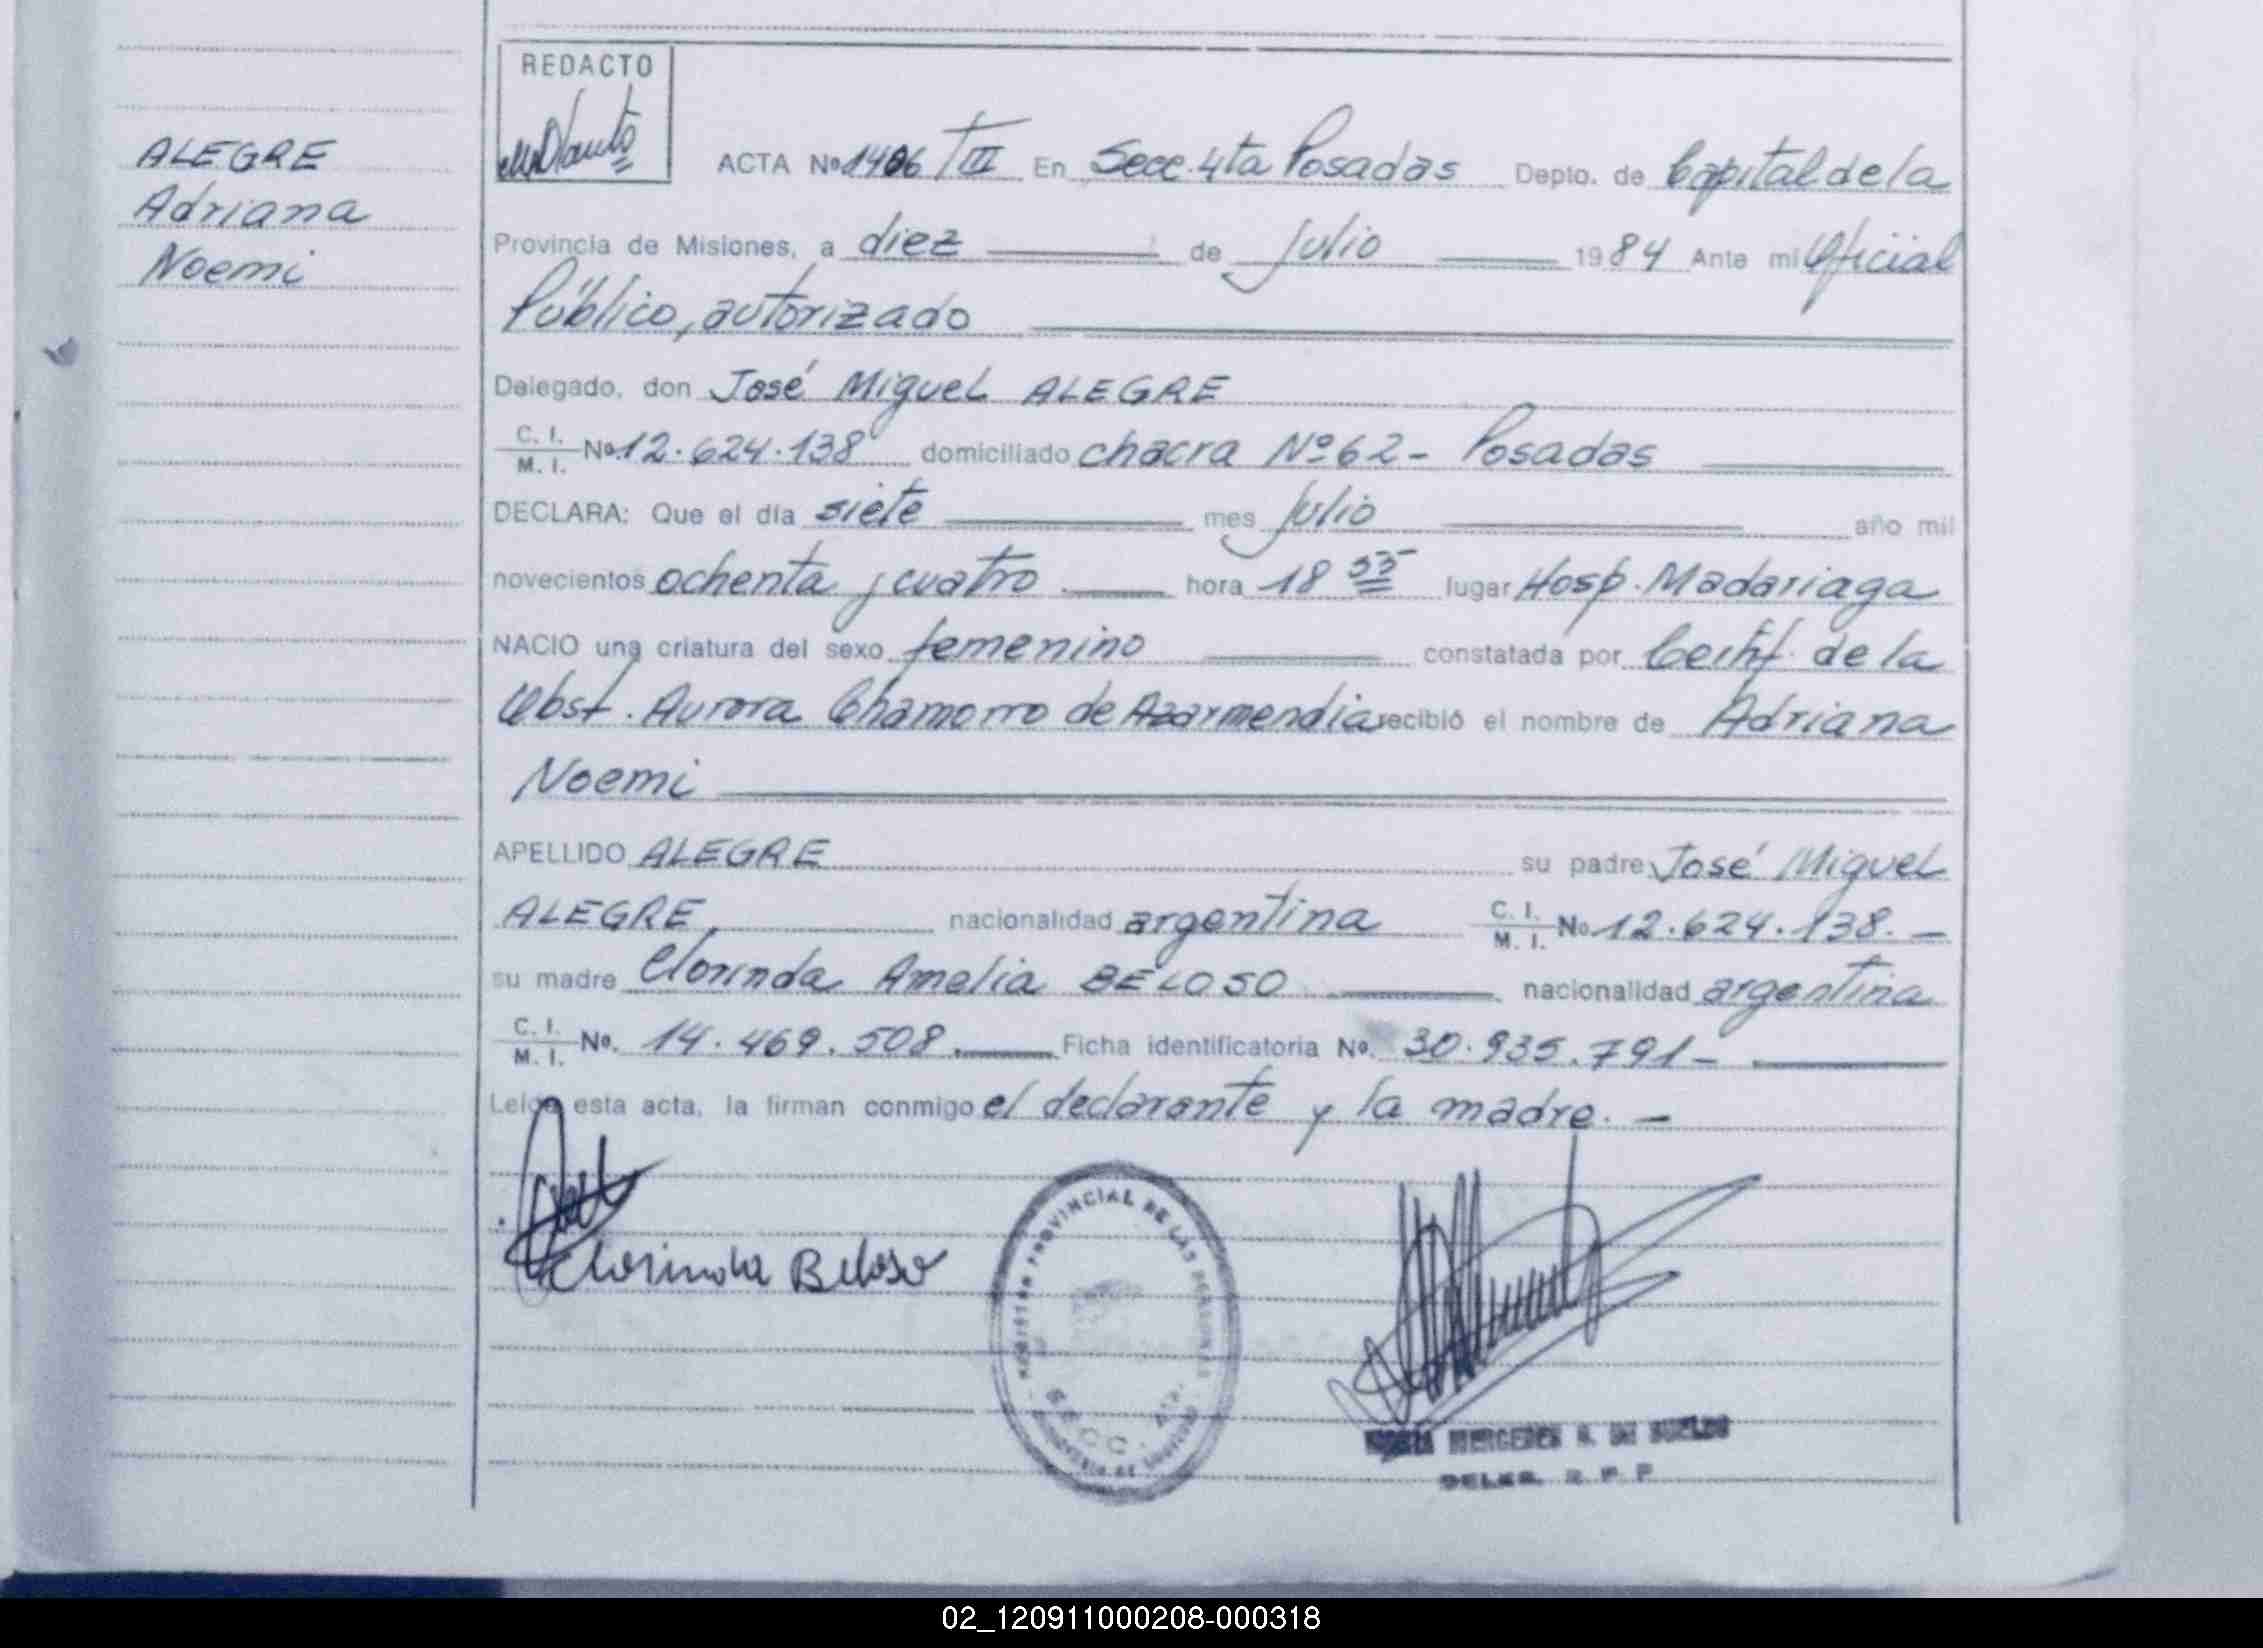 REDACTO
ALEGRE
Adriana
Noemi
ACTA Nº 1406 TIII En Secc. 4ta Posadas Depto. de Capital de la
Provincia de Misiones, a diez de Julio 1984 Ante mi Oficial
Público, autorizado
Delegado, don José Miguel ALEGRE
C. I. M. I. Nº 12.624.138 domiciliado chacra Nº 62 - Posadas
DECLARA: Que el día siete mes Julio año mil
novecientos ochenta y cuatro hora 18 55 lugar Hosp. Madariaga
NACIO una criatura del sexo femenino constatada por Certif. de la
Obst. Aurora Chamorro de Azarmendia recibió el nombre de Adriana
Noemi
APELLIDO ALEGRE su padre José Miguel
ALEGRE, nacionalidad argentina C. I. M. I. Nº 12.624.138. -
su madre Clorinda Amelia BELOSO nacionalidad argentina
C. I. M. I. Nº. 14.469.508. Ficha identificatoria Nº. 30.935.791 -
Leida esta acta, la firman conmigo el declarante y la madre. -
Clorinda Beloso
REGISTRO PROVINCIAL DE LAS PERSONAS
SECC. 4ta.
MERCEDES
DELEG. R. P. P
02_120911000208-000318